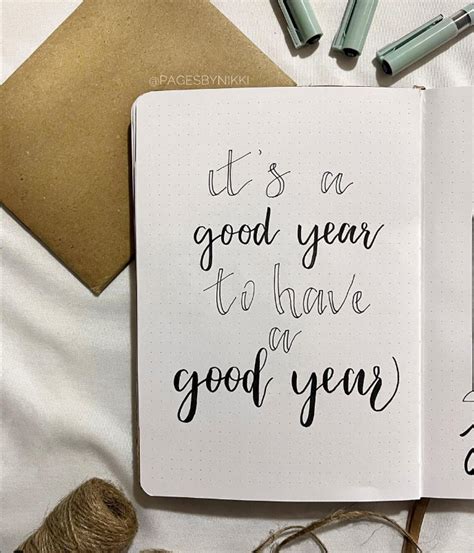 @PAGESBYNIKKI
it's a
good year
to have
a
good year